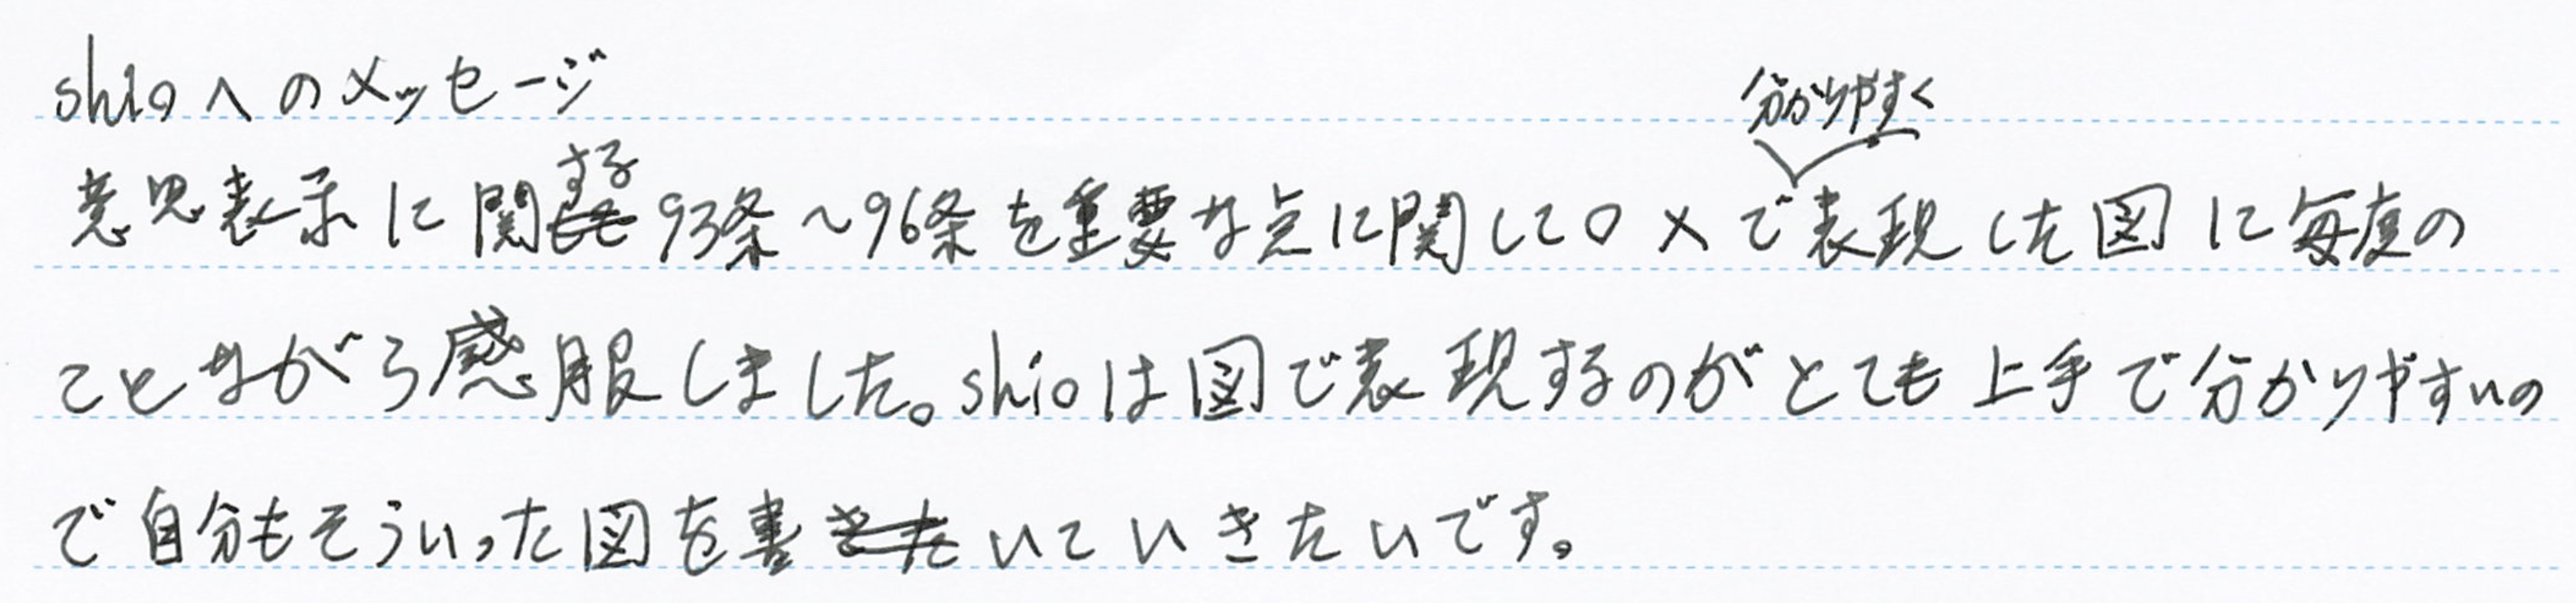 shioへのメッセージ
意思表示に関する93条～96条を重要な点に関して○×で分かりやすく表現した図に毎度の
ことながら感服しました。shioは図で表現するのがとても上手で分かりやすいの
で自分もそういった図を書いていきたいです。